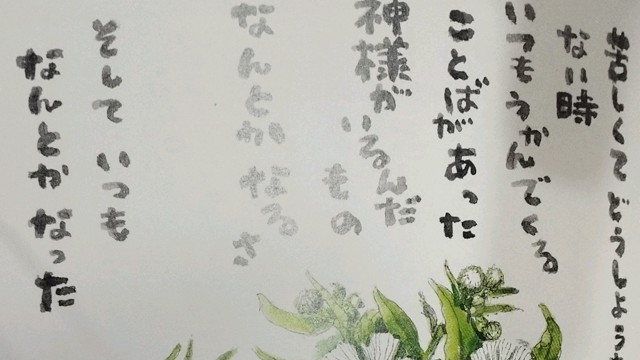 苦しくて どうしょう
ない時
いつもうかんでくる
ことばがあった
神様がいるんだ
もの
なんとか なるさ
そして いつも
なんとか なった